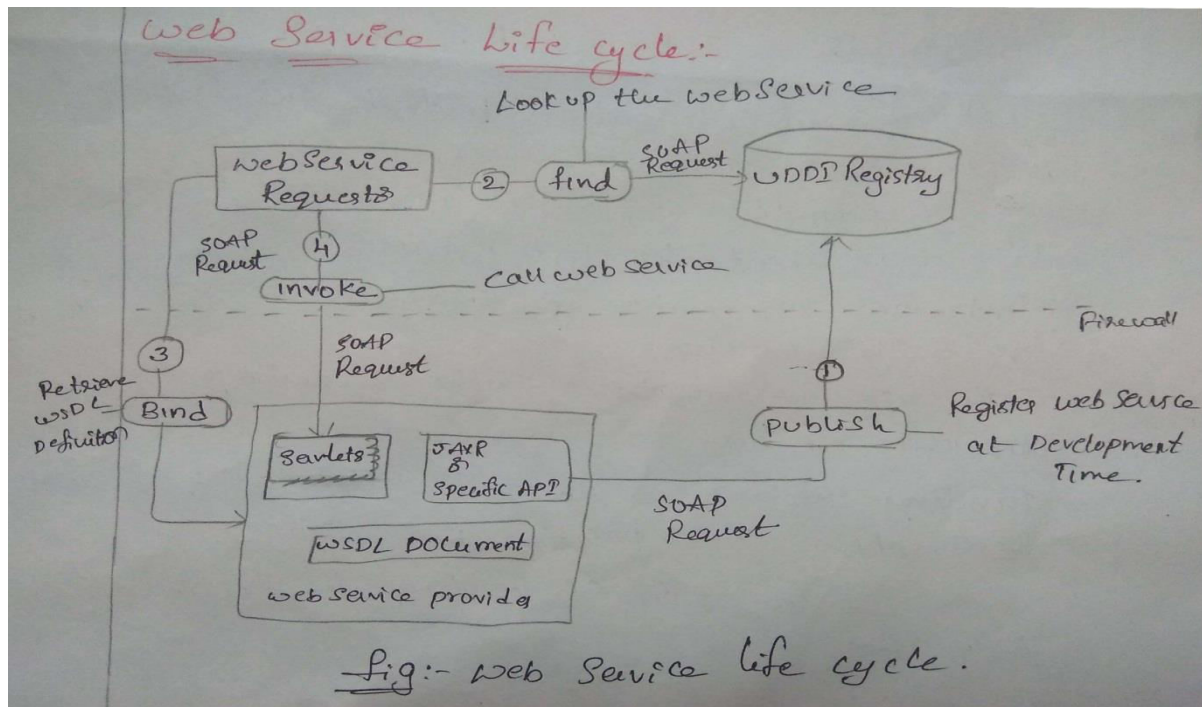 Web Service Life cycle:-
Look up the webservice
webservice
Requests
2
find
SOAP
Request
UDDI Registry
SOAP
Request
4
invoke
call web service
Firewall
3
Retrieve
WSDL
Definition
Bind
SOAP
Request
1
publish
Register web service
at Development
Time.
Servlets
JAXR
or
Specific API
SOAP
Request
WSDL Document
web service provider
fig:- web Service life cycle.